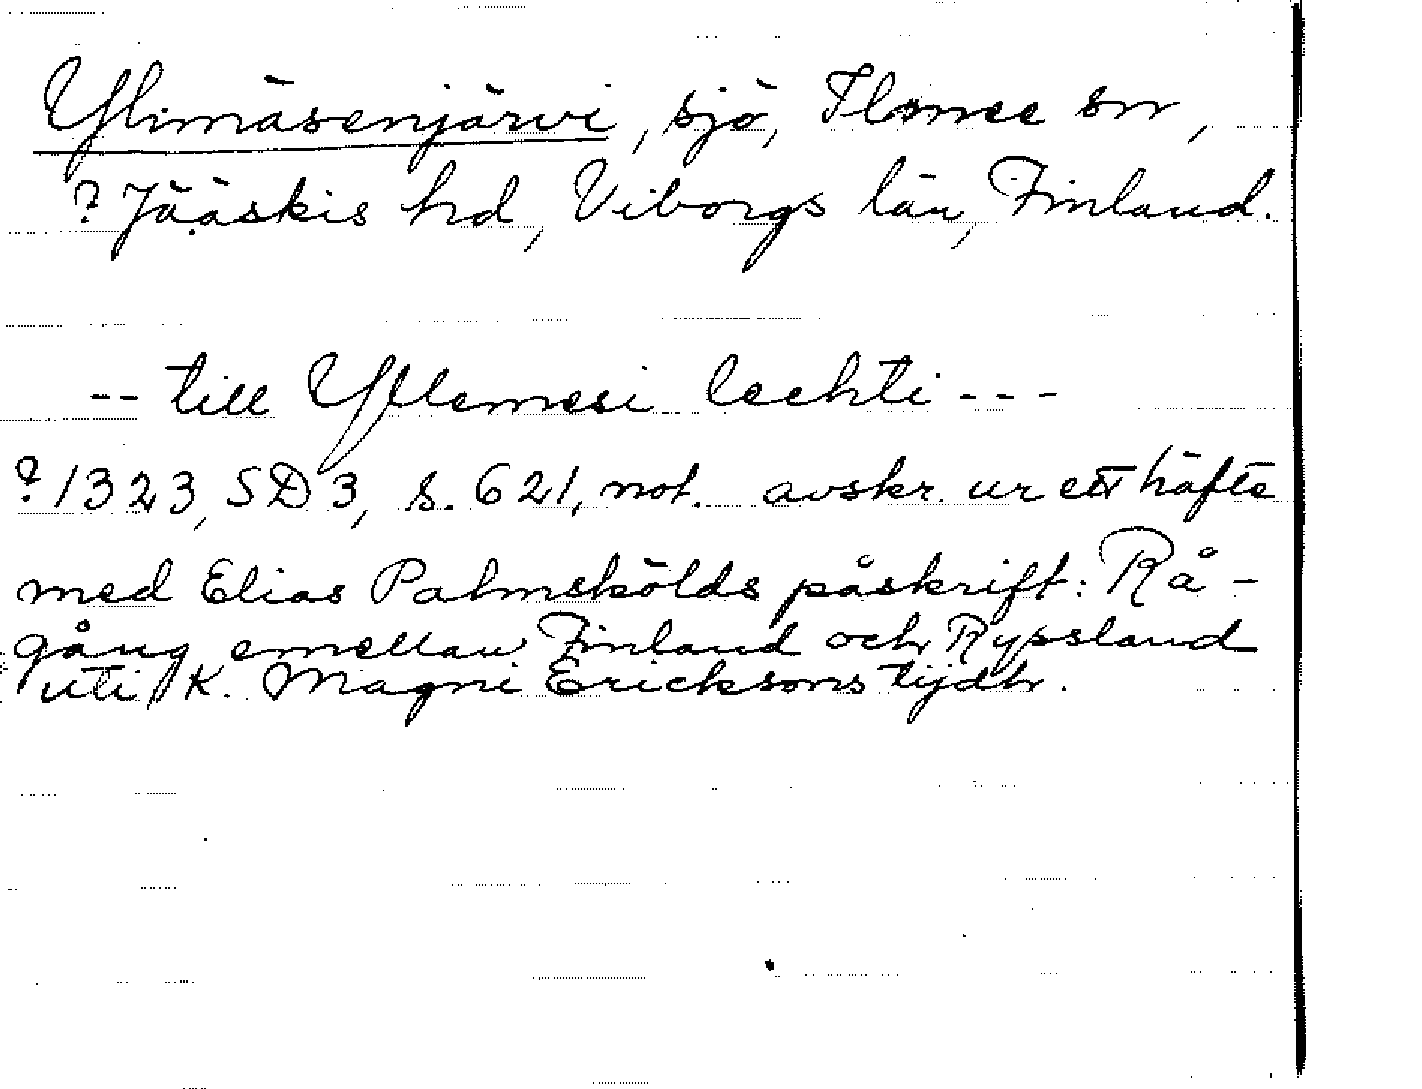 Ylimäsenjärvi, sjö, Ilomee sn,
? Jääskis hd, Viborgs län, Finland.
-- till Yllemesi lechti ---
? 1323, SD 3, s. 621, not. avskr. ur ett häfte
med Elias Palmskölds påskrift: Rå-
gång emellan Finland och Rypsland
uti K. Magni Ericksons tijdh.